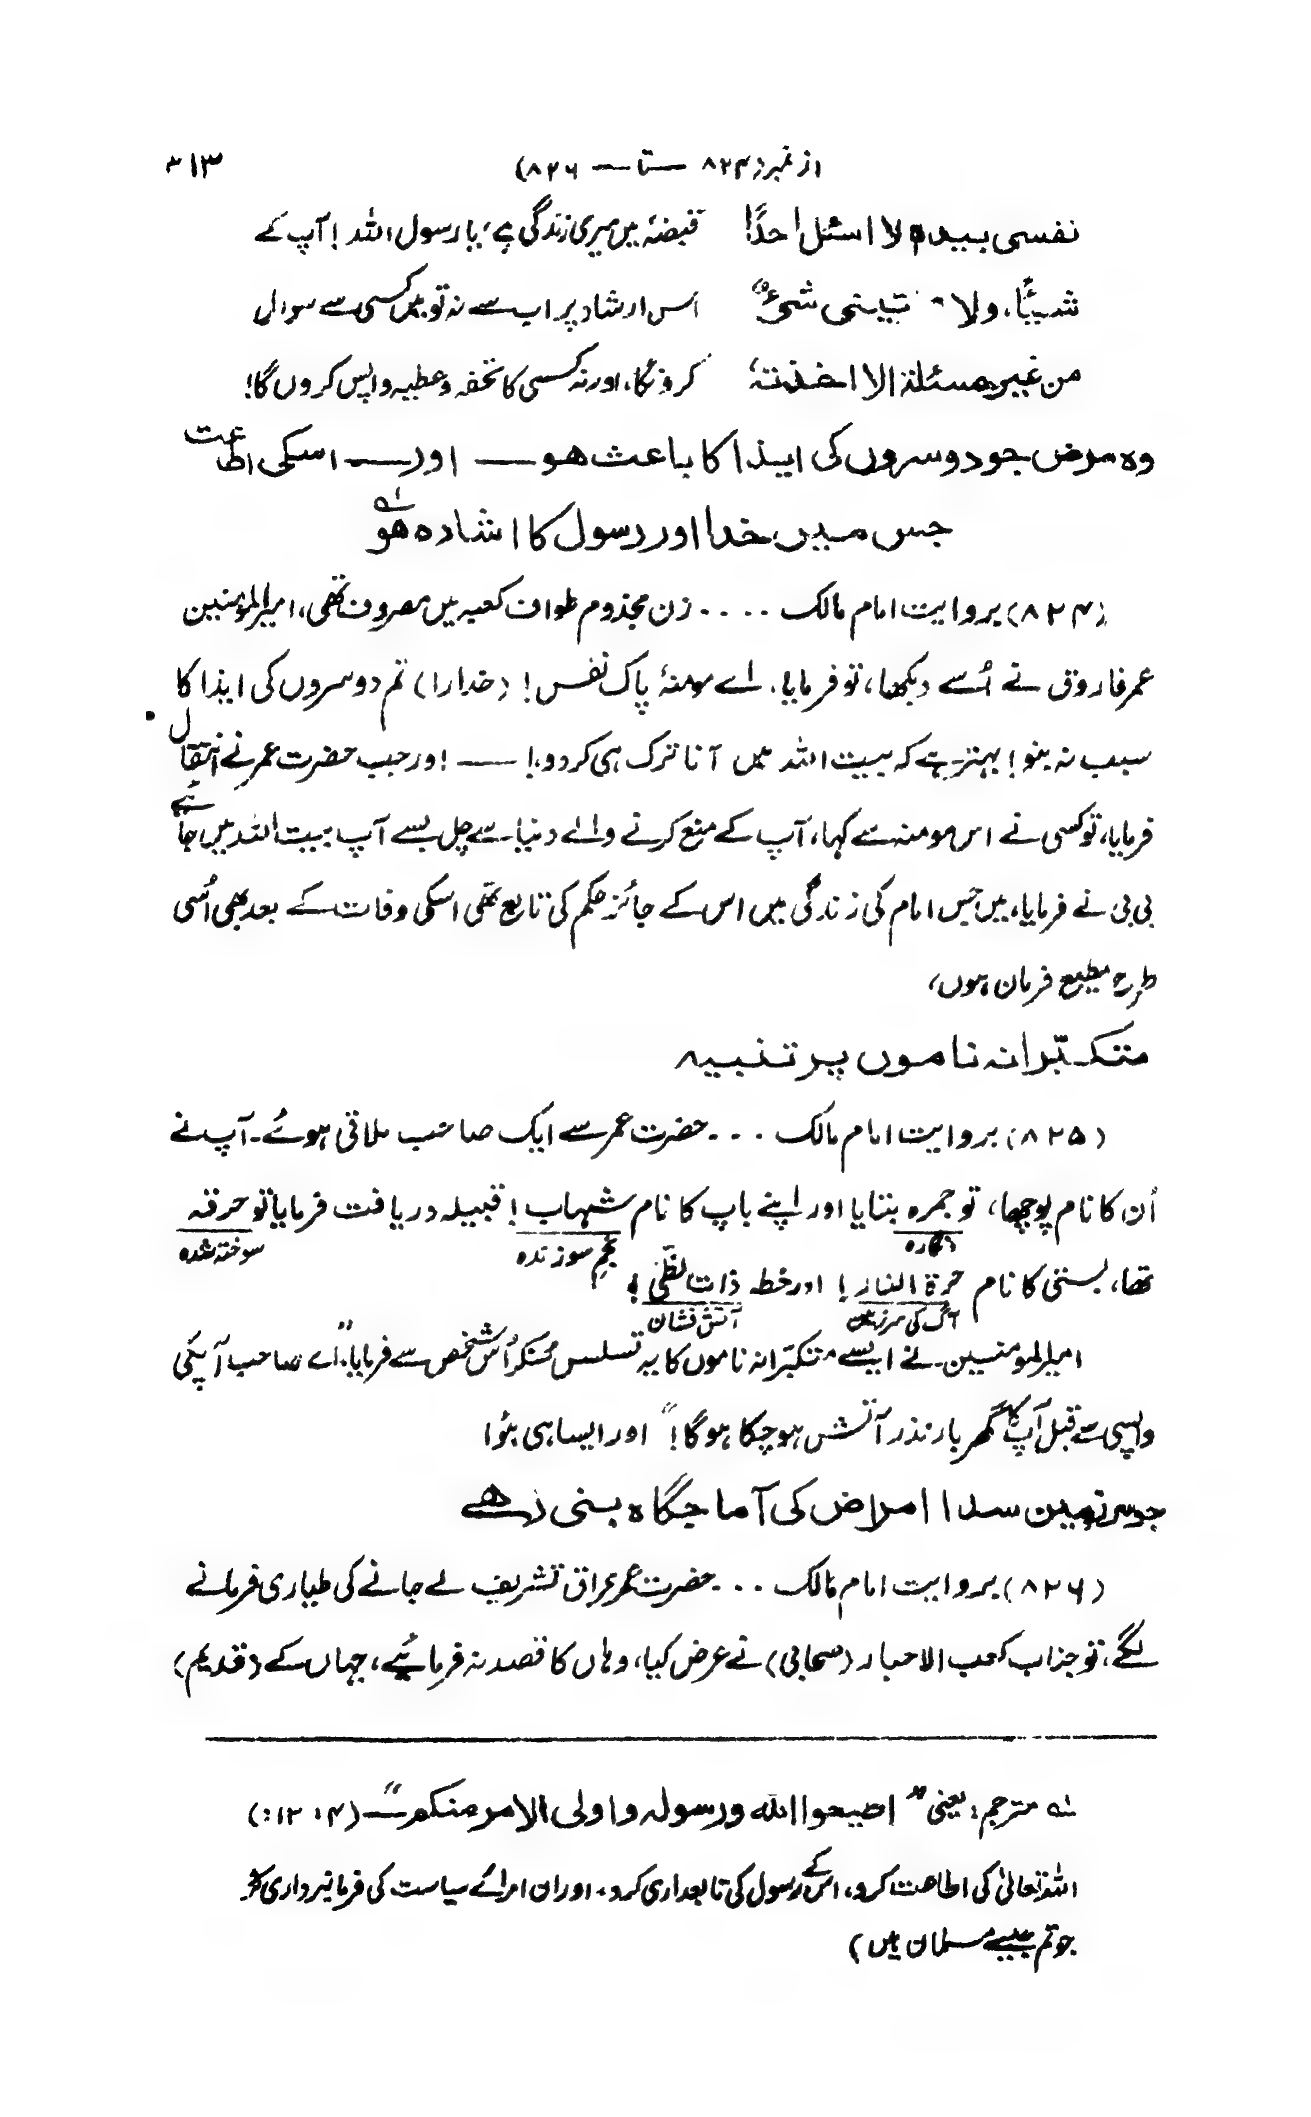 از نمبر (۸۲۴ — تا — ۸۲۶) ۳۱۳
نفسی بیدہ لا اسئل احدًا قبضۂ میں میری زندگی ہے، یا رسول اللہ! آپ کے
شیئًا، ولا یاتینی شیءٌ اس ارشاد پر اب سے نہ تو میں کسی سے سوال
من غیر مسئلۃ الا اخذتہٗ کرونگا، اور نہ کسی کا تحفہ و عطیہ واپس کروں گا!
وہ مرض جو دوسروں کی ایذا کا باعث ہو — اور — اسکی اطاعت
جس میں خدا اور رسول کا اشادہ ہو لہ
(۸۲۴) بروایت امام مالک .... زن مجذوم طواف کعبہ میں مصروف تھی، امیرالمومنین
عمر فاروق نے اُسے دیکھا، تو فرمایا. اے مومنۂ پاک نفس! (خدارا) تم دوسروں کی ایذا کا
سبب نہ بنو! بہتر ہے کہ بیت اللہ میں آنا ترک ہی کر دو،! — اور جب حضرت عمر نے انتقال
فرمایا، تو کسی نے اس مومنہ سے کہا، آپ کے منع کرنے والے دنیا سے چل بسے آپ بیت اللہ میں جائیے
بی بی نے فرمایا، میں جس امام کی زندگی میں اس کے جائز حکم کی تابع تھی اسکی وفات کے بعد بھی اُسی
طرح مطیع فرمان ہوں،
متکبّرانہ ناموں پر تنبیہ
(۸۲۵) بروایت امام مالک ... حضرت عمر سے ایک صاحب ملاقی ہوئے۔ آپ نے
اُن کا نام پوچھا، تو جمرہ بتایا اور اپنے باپ کا نام شہاب! قبیلہ دریافت فرمایا تو حرقہ
انگارہ نجمِ سوزندہ سوختہ شدہ
تھا، بستی کا نام حرۃ النار! اور خطہ ذات لظٰی!
آگ کی سرزمین آتش فشان
امیرالمومنین نے ایسے متکبّرانہ ناموں کا یہ تسلسل سُنکر اُس شخص سے فرمایا "اے صاحب آپکی
واپسی سے قبل آپ کا گھر بار نذر آتش ہو چکا ہو گا!" اور ایسا ہی ہُوا
جو سرزمین سدا امراض کی آماجگاہ بنی رہے
(۸۲۶) بروایت امام مالک ... حضرت عمر عراق تشریف لے جانے کی طیاری فرمانے
لگے، تو جناب کعب الاحبار (صحابی) نے عرض کیا، وہاں کا قصد نہ فرمائیے، جہاں کے (قدیم)
لہ مترجم: یعنی "اطیعوا اللہ ورسولہ و اولی الامر منکم —" (۴ : ۱۲ :)
اللہ تعالیٰ کی اطاعت کرو، اس کے رسول کی تابعداری کرو، اور ان امرائے سیاست کی فرمانبرداری کرو
جو تم جیسے مسلمان ہیں)